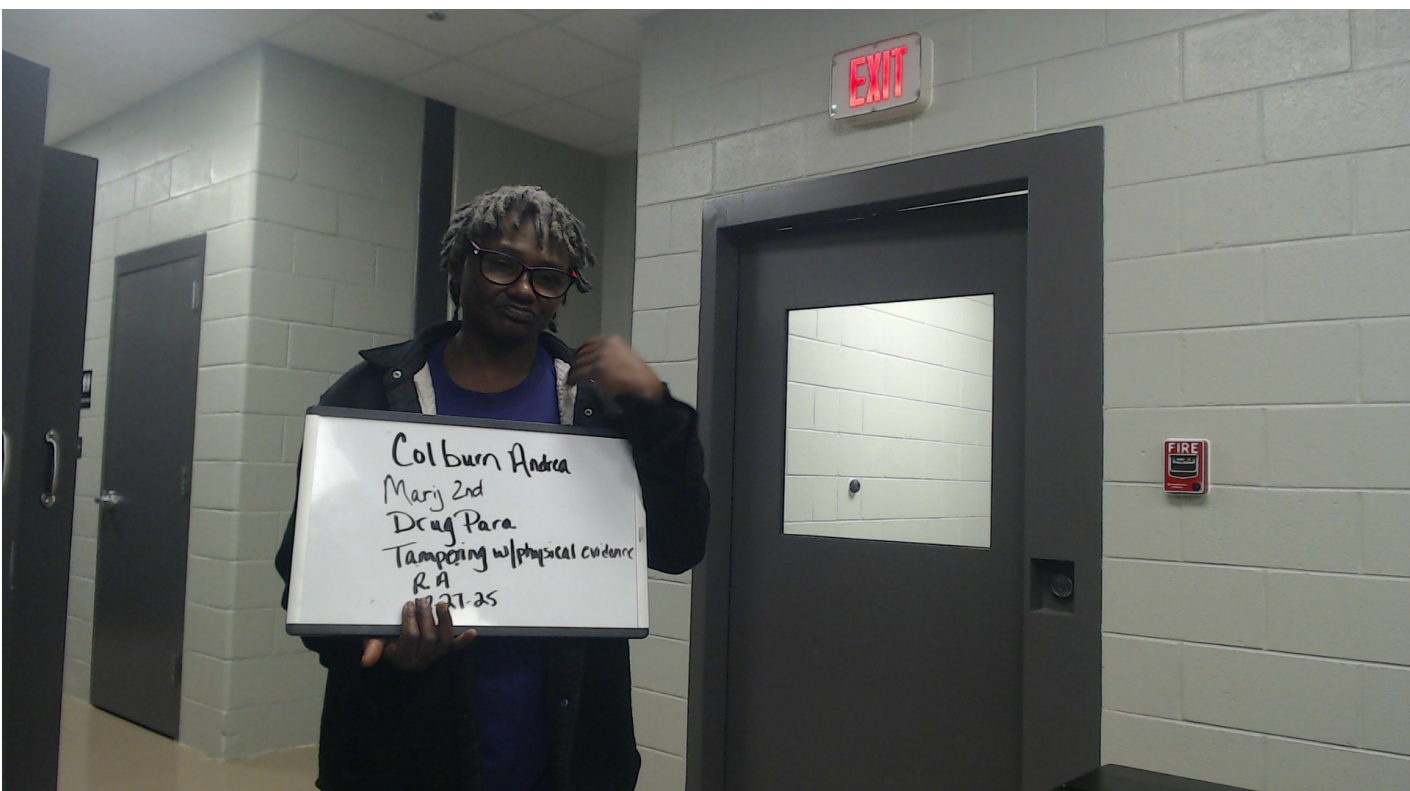 EXIT
Colburn Andrea
Marij 2nd
Drug Para
Tampering w/physical evidence
RA
27-25
FIRE